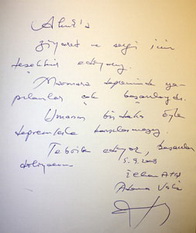 Ahmet'e
Ziyaret ve sergi için
teşekkür ediyoruz.
Marmara depreminde ya-
pılanlar çok başarılıydı.
Umarım bir daha öyle
depremlerle karşılaşmayız.
Tebrik ediyor, başarılar
diliyorum
İlhan ATIŞ
Adana Valisi